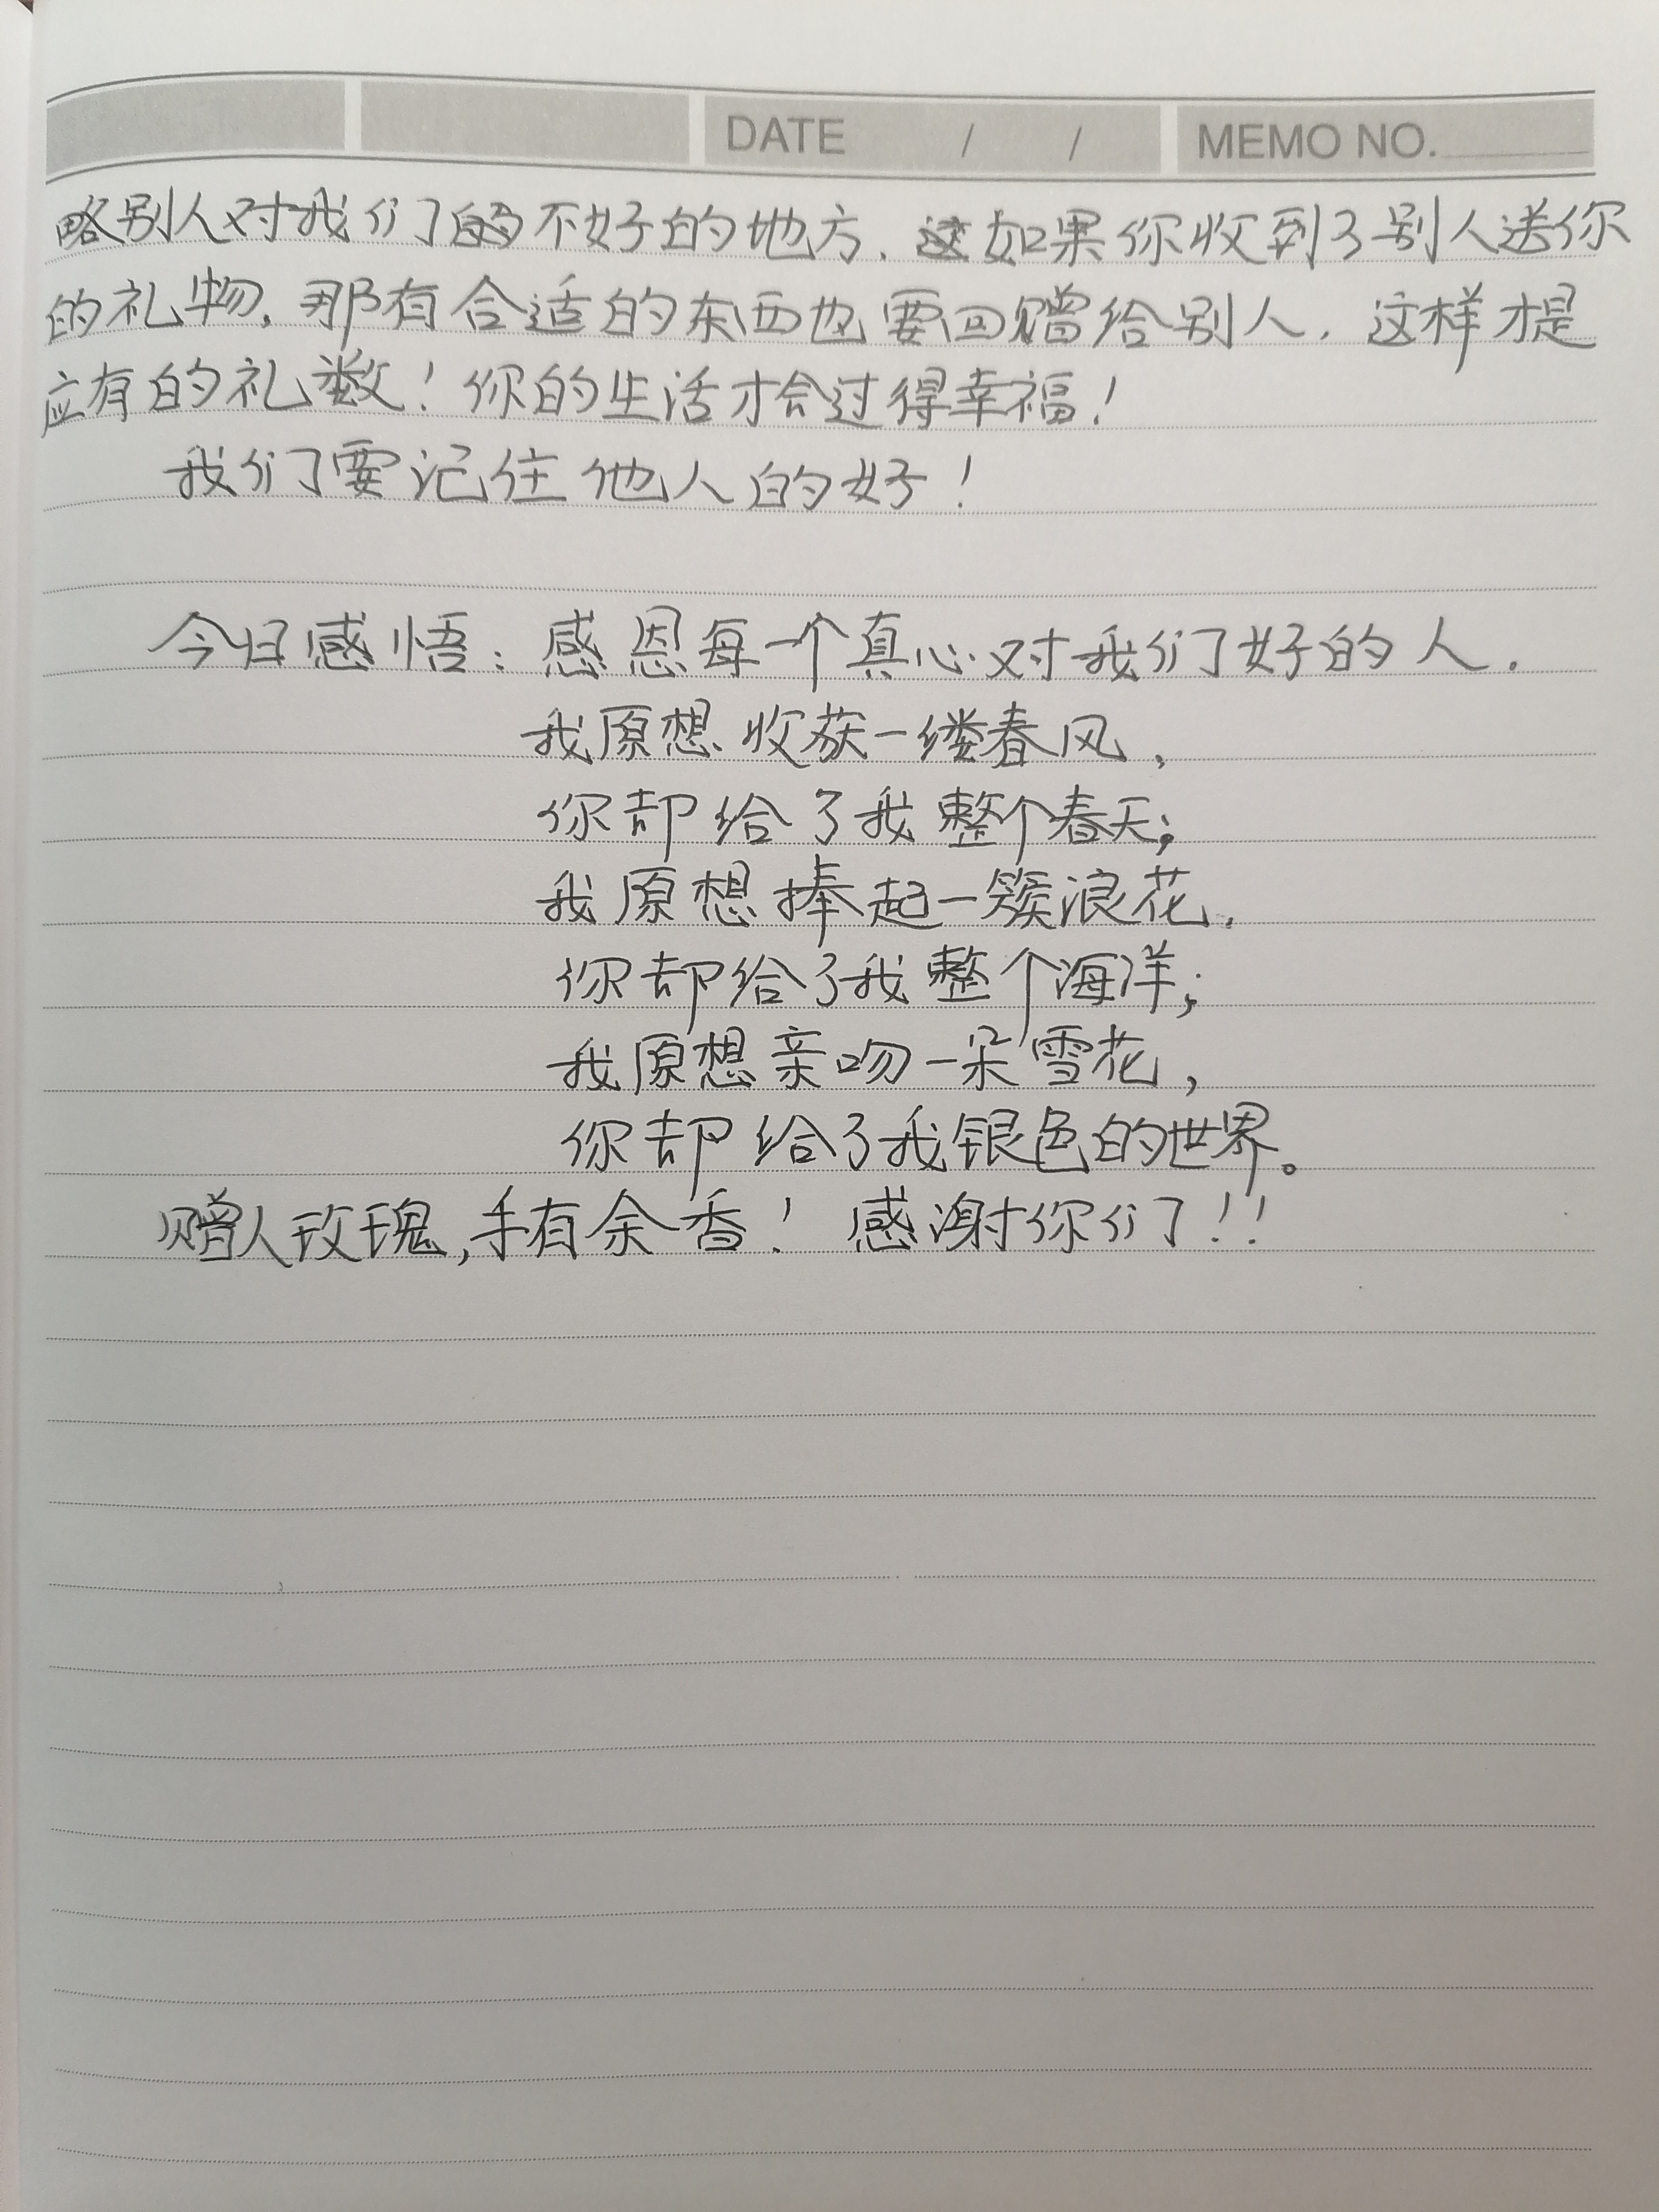 DATE / / MEMO NO.
略别人对我们的不好的地方.如果你收到了别人送你
的礼物,那有合适的东西也要回赠给别人.这样才是
应有的礼数!你的生活才会过得幸福!
我们要记住他人的好!
今日感悟:感恩每一个真心对我们好的人.
我原想收获一缕春风,
你却给了我整个春天;
我原想捧起一簇浪花,
你却给了我整个海洋;
我原想亲吻一朵雪花,
你却给了我银色的世界。
赠人玫瑰,手有余香!感谢你们!!